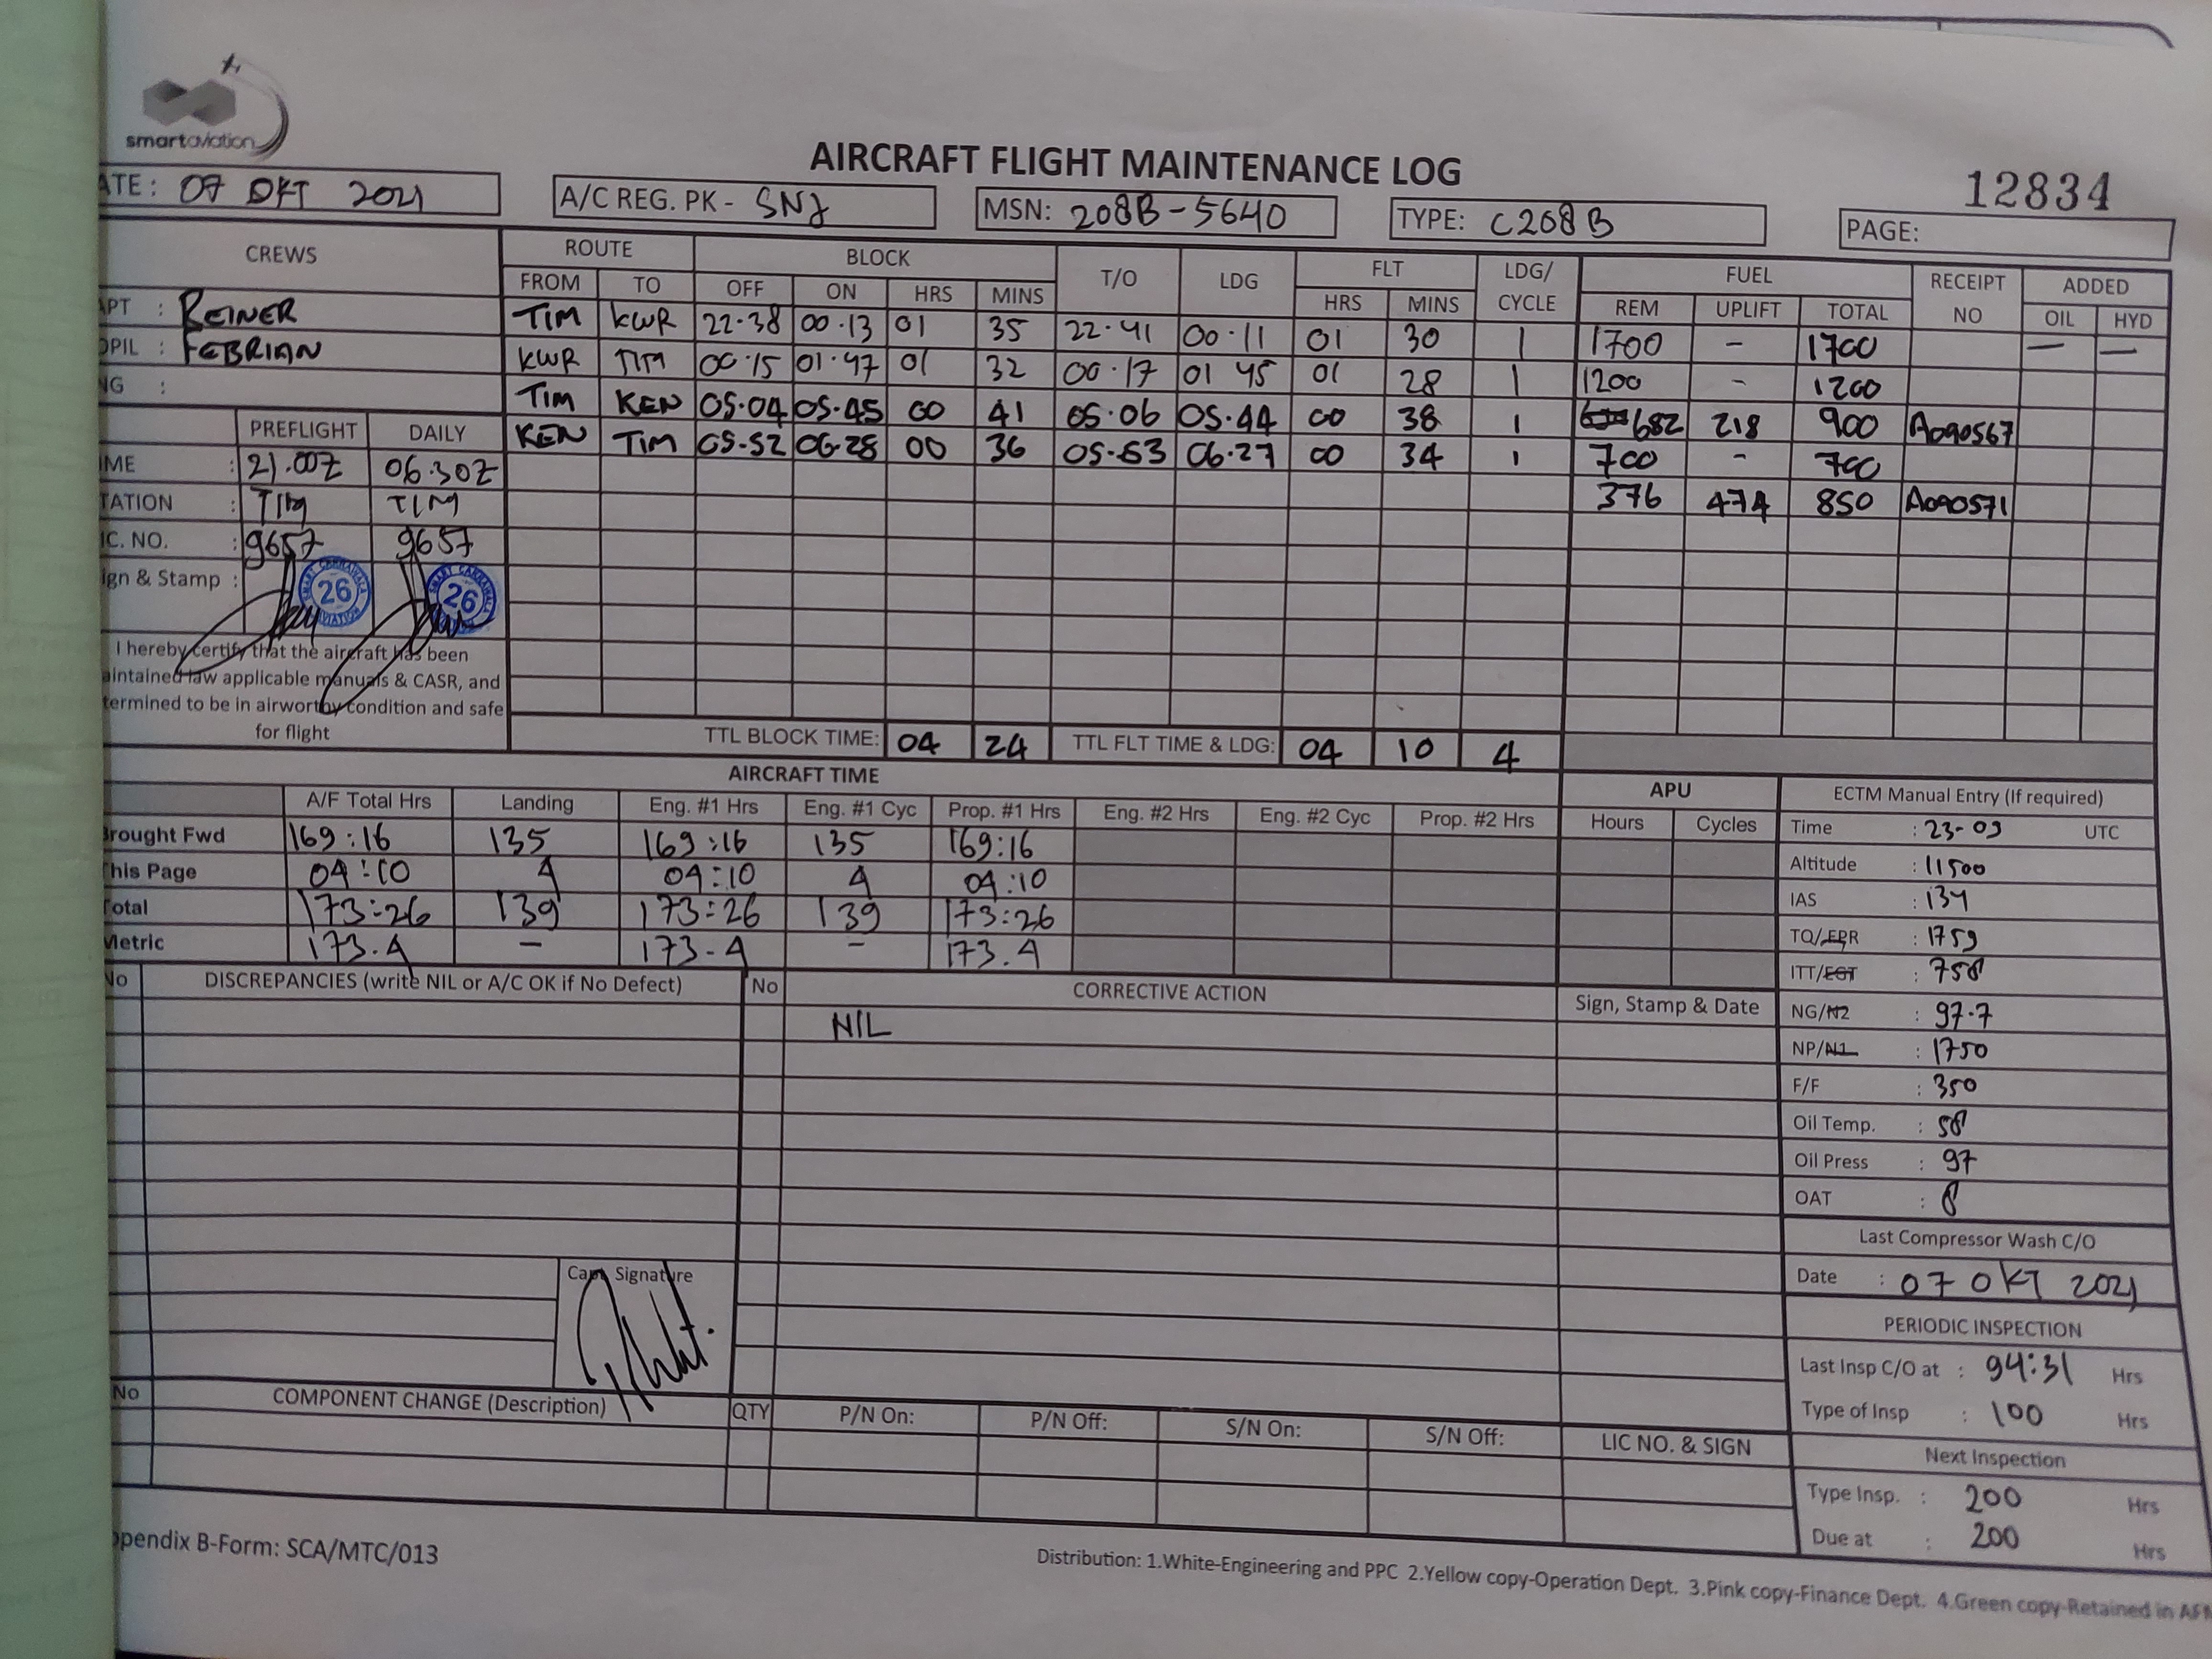 smartaviation
AIRCRAFT FLIGHT MAINTENANCE LOG
12834
ATE: 07 OKT 2021 A/C REG. PK - SNJ MSN: 208B-5640 TYPE: C208B PAGE:
CREWS ROUTE BLOCK T/O LDG FLT LDG/ CYCLE FUEL RECEIPT NO ADDED
FROM TO OFF ON HRS MINS HRS MINS REM UPLIFT TOTAL OIL HYD
APT : REINER TIM KWR 22.38 00.13 01 35 22.41 00.11 01 30 1 1700 - 1700 — —
OPIL : FEBRIAN KWR TIM 00.15 01.47 01 32 00.17 01 45 01 28 1 1200 - 1200
NG : TIM KEN 05.04 05.45 00 41 05.06 05.44 00 38 1 682 218 900 A090567
PREFLIGHT DAILY KEN TIM 05.52 06.28 00 36 05.53 06.27 00 34 1 700 - 700
IME : 21.00Z 06.30Z 376 474 850 A090571
TATION : TIM TIM
IC. NO. : 9657 9657
ign & Stamp : 26 26
I hereby certify that the aircraft has been
aintained law applicable manuals & CASR, and
termined to be in airworthy condition and safe
for flight
TTL BLOCK TIME: 04 24 TTL FLT TIME & LDG: 04 10 4
AIRCRAFT TIME APU ECTM Manual Entry (If required)
A/F Total Hrs Landing Eng. #1 Hrs Eng. #1 Cyc Prop. #1 Hrs Eng. #2 Hrs Eng. #2 Cyc Prop. #2 Hrs Hours Cycles
Brought Fwd 169:16 135 169:16 135 169:16
This Page 04:10 4 04:10 4 04:10
Total 173:26 139 173:26 139 173:26
Metric 173.4 - 173.4 - 173.4
Time : 23-09 UTC
Altitude : 11500
IAS : 134
TQ/EPR : 1759
ITT/EGT : 758
NG/N2 : 97.7
NP/N1 : 1750
F/F : 350
Oil Temp. : 58
Oil Press : 97
OAT : 8
No DISCREPANCIES (write NIL or A/C OK if No Defect) No CORRECTIVE ACTION Sign, Stamp & Date
NIL
Capt. Signature
Last Compressor Wash C/O
Date : 07 OKT 2021
PERIODIC INSPECTION
Last Insp C/O at : 94:31 Hrs
Type of Insp : 100 Hrs
Next Inspection
Type Insp. : 200 Hrs
Due at : 200 Hrs
No COMPONENT CHANGE (Description) QTY P/N On: P/N Off: S/N On: S/N Off: LIC NO. & SIGN
ppendix B-Form: SCA/MTC/013
Distribution: 1.White-Engineering and PPC 2.Yellow copy-Operation Dept. 3.Pink copy-Finance Dept. 4.Green copy-Retained in AFM